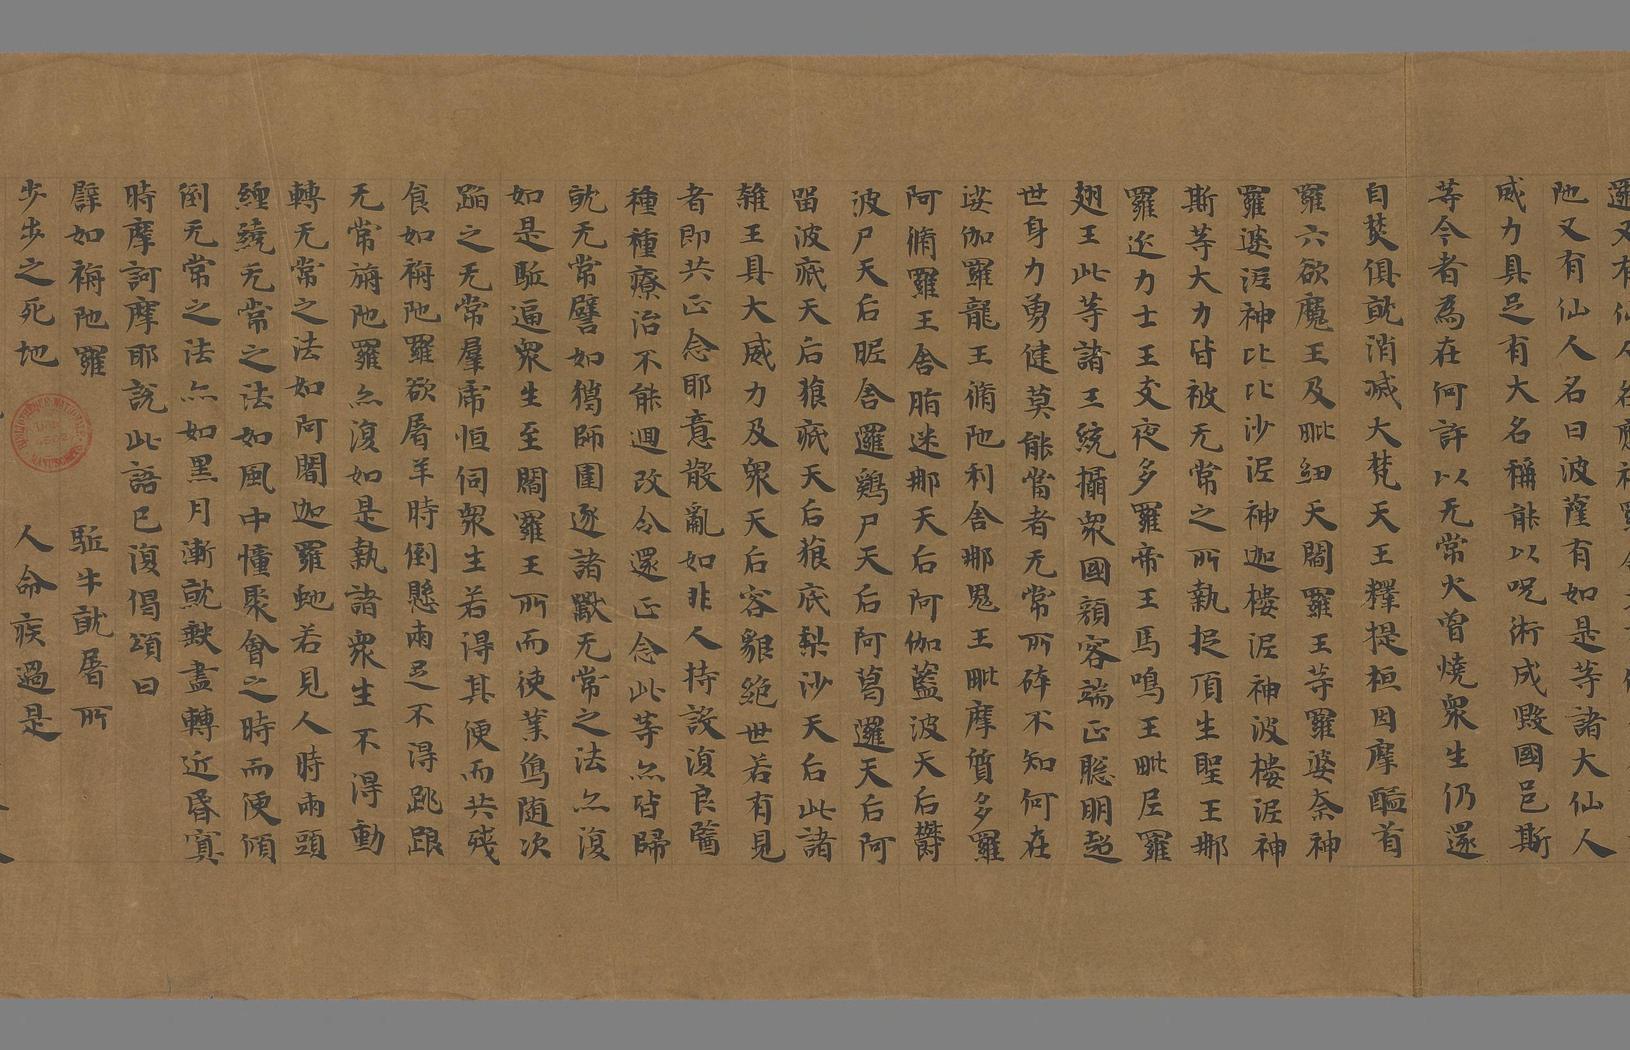 陁又有仙人名曰波薩有如是等諸大仙人
威力具足有大名稱能以呪術成毀國邑斯
等今者為在何許以无常火曾燒眾生仍還
自焚俱就消滅大梵天王釋提桓因摩醯首
羅六欲魔王及毗紐天閻羅王等羅婆奈神
羅婆泥神比比沙泥神迦樓泥神波樓泥神
斯等大力皆被无常之所執捉頂生聖王那
羅延力士王支夜多羅帝王馬鳴王毗尼羅
翅王此等諸王統攝眾國顏容端正聡明超
世身力勇健莫能當者无常所碎不知何在
娑伽羅龍王脩陁利舍那鬼王毗摩質多羅
阿脩羅王舍脂迷那天后阿伽藍波天后欝
波尸天后昵舍邏鷄尸天后阿葛邏天后阿
留波底天后狼底天后狼底梨沙天后此諸
雜王具大威力及眾天后容皃絕世若有見
者即共正念耶意散亂如非人持設復良醫
種種療治不能迴改令還正念此等亦皆歸
就无常譬如獦師圍逐諸獸无常之法亦復
如是駈逼眾生至閻羅王所而使業鳥随次
蹈之无常羣席恒伺眾生若得其便而共殘
食如旃陁羅欲屠羊時倒懸兩足不得跳踉
无常旃陁羅亦復如是執諸眾生不得動
轉无常之法如阿闍迦羅虵若見人時兩頭
纏繞无常之法如風中幢聚會之時而便傾
倒无常之法亦如黑月漸就𣣋盡轉近昏冥
時摩訶摩耶說此語已復偈頌曰
譬如旃陁羅　駈牛就屠所
步步之死地　人命疾過是